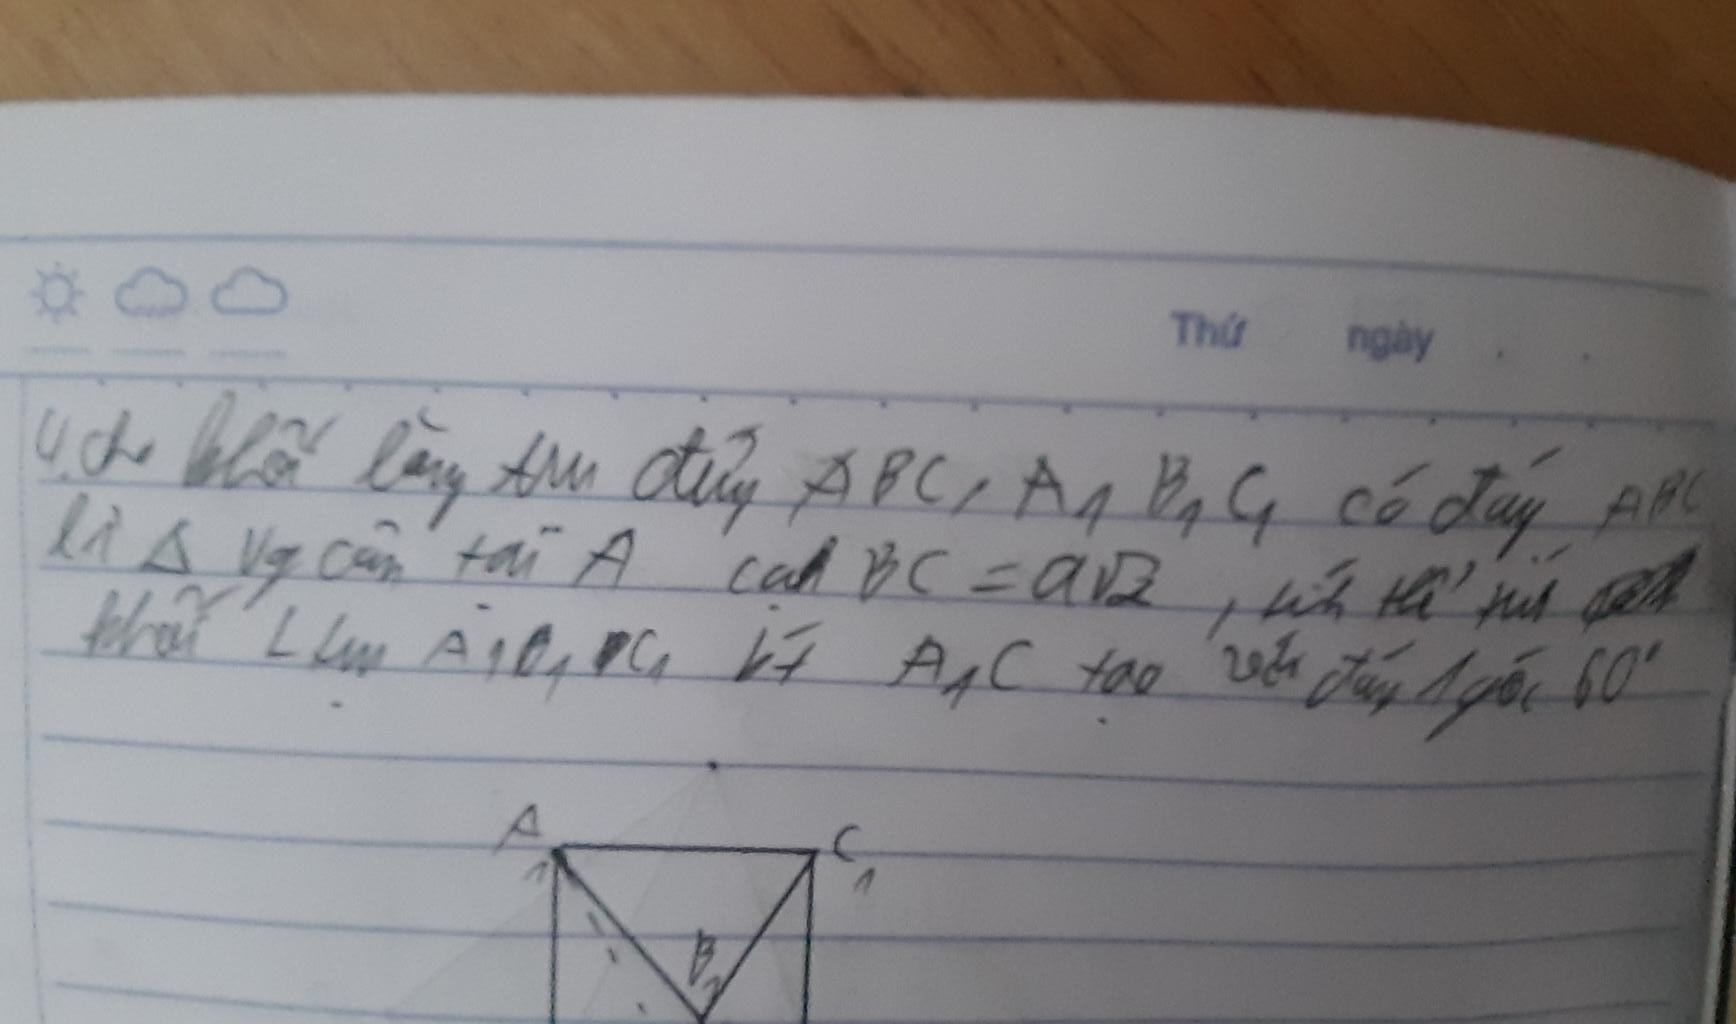 Thứ ngày
4. cho khối lăng trụ đứng ABC, A₁B₁C₁ có đáy ABC
là Δ vg cân tại A cạh BC = a√2, tíh thể tích
khối L trụ A₁B₁C₁ bt A₁C tạo với đáy 1 góc 60°
A₁ C₁
B₁